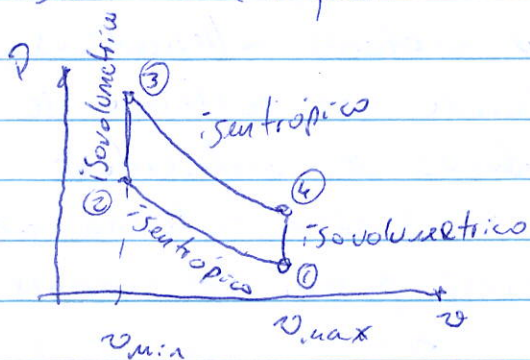 P
isovolumetrico
③
isentrópico
④
②
isentrópico
isovolumetrico
①
v min
v max
v